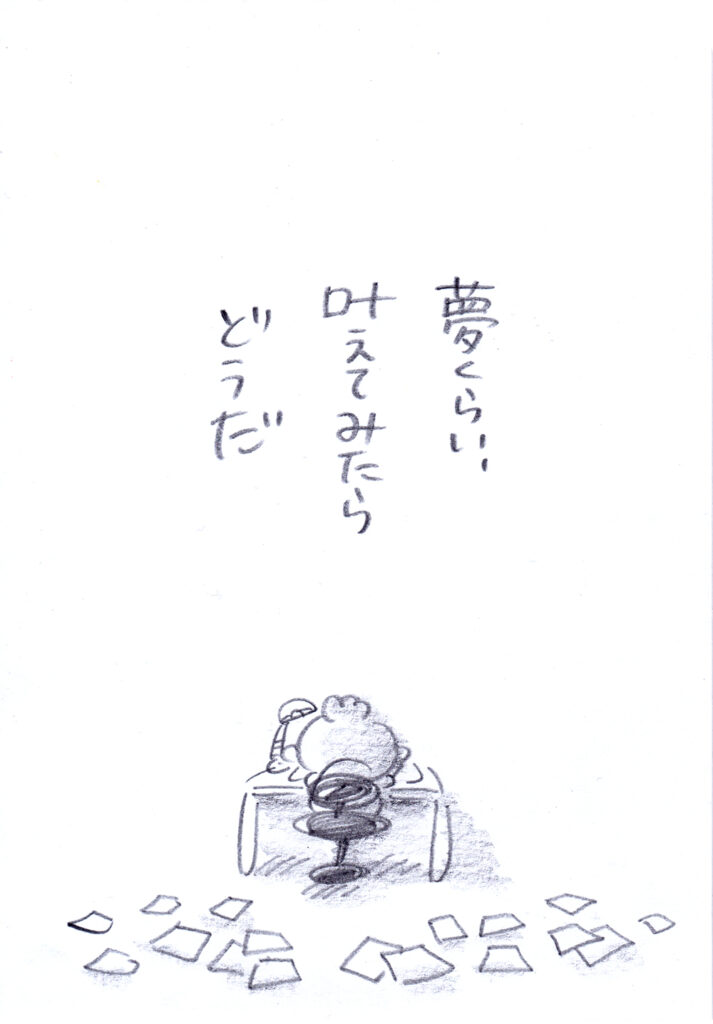 夢くらい、
叶えてみたら
どうだ